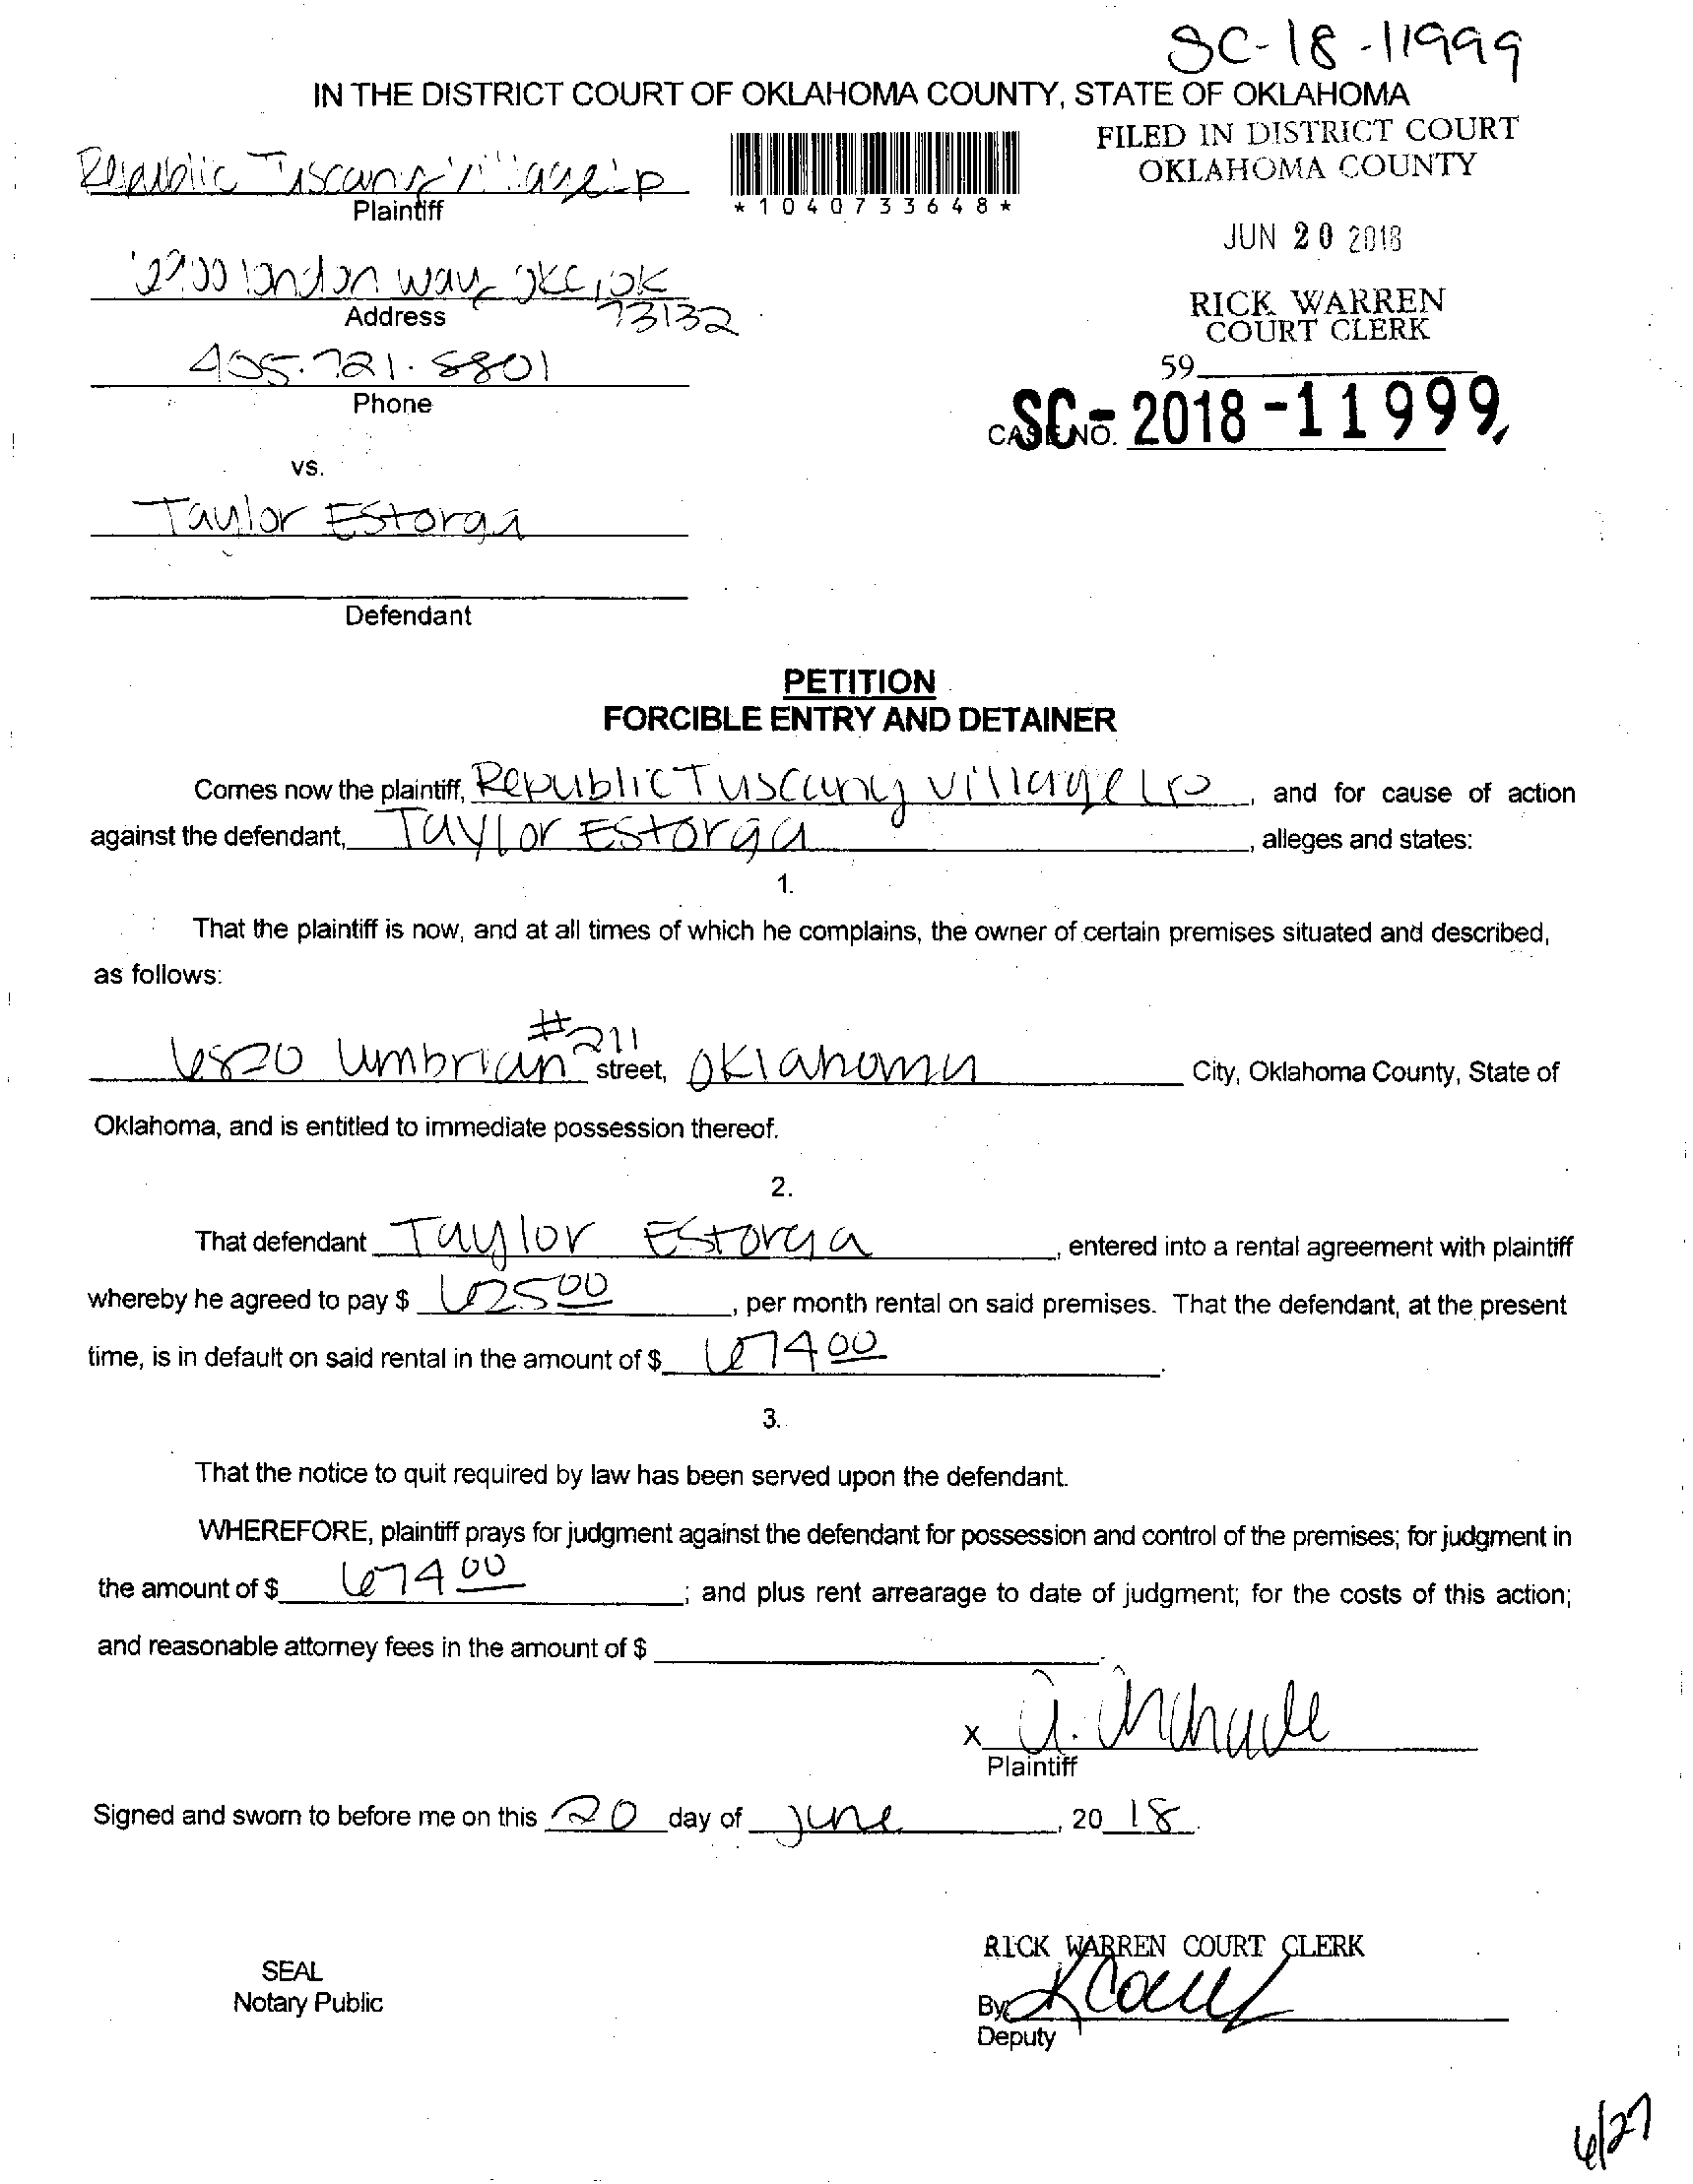 SC-18-11999
IN THE DISTRICT COURT OF OKLAHOMA COUNTY, STATE OF OKLAHOMA
FILED IN DISTRICT COURT
OKLAHOMA COUNTY
Republic Tuscany village lp
Plaintiff
*1040733648*
JUN 20 2018
London Way OKC, OK
73132
Address
RICK WARREN
COURT CLERK
405.721.8801
Phone
59
CASE NO. SC-2018-11999
vs.
Taylor Estorga
Defendant
PETITION
FORCIBLE ENTRY AND DETAINER
Comes now the plaintiff, Republic Tuscany village LP, and for cause of action
against the defendant, Taylor Estorga, alleges and states:
1.
That the plaintiff is now, and at all times of which he complains, the owner of certain premises situated and described,
as follows:
6820 Umbrian #211 street, Oklahoma City, Oklahoma County, State of
Oklahoma, and is entitled to immediate possession thereof.
2.
That defendant Taylor Estorga, entered into a rental agreement with plaintiff
whereby he agreed to pay $ 625 00, per month rental on said premises. That the defendant, at the present
time, is in default on said rental in the amount of $ 674 00.
3.
That the notice to quit required by law has been served upon the defendant.
WHEREFORE, plaintiff prays for judgment against the defendant for possession and control of the premises; for judgment in
the amount of $ 674 00; and plus rent arrearage to date of judgment; for the costs of this action;
and reasonable attorney fees in the amount of $
x
Plaintiff
Signed and sworn to before me on this 20 day of June, 20 18.
RICK WARREN COURT CLERK
SEAL
Notary Public
By
Deputy
6/27